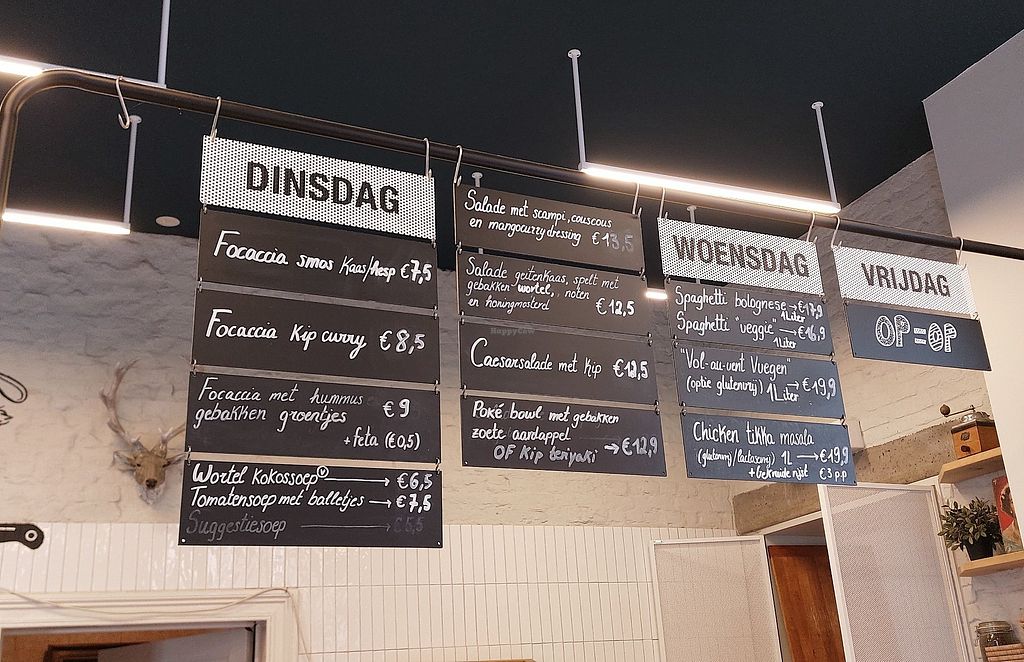 DINSDAG
Focaccia smos Kaas/Hesp €7,5
Focaccia Kip curry €8,5
Focaccia met hummus
gebakken groentjes €9
+feta (€0,5)
Wortel Kokossoep → €6,5
Tomatensoep met balletjes → €7,5
Suggestiesoep €5,5
Salade met scampi, couscous
en mangocurry dressing €13,5
Salade geitenkaas, spelt met
gebakken wortel, noten
en honingmosterd €12,5
Caesarsalade met kip €12,5
Poké bowl met gebakken
zoete aardappel
OF Kip teriyaki → €12,9
WOENSDAG
Spaghetti bolognese → €17,9
1Liter
Spaghetti "veggie" → €16,9
1Liter
"Vol-au-vent Vuegen"
(optie glutenvrij) 1Liter → €19,9
Chicken tikka masala
(glutenvrij/lactosevrij) 1L → €19,9
+Gekruide rijst €3 p.p
VRIJDAG
OP=OP
HappyCow